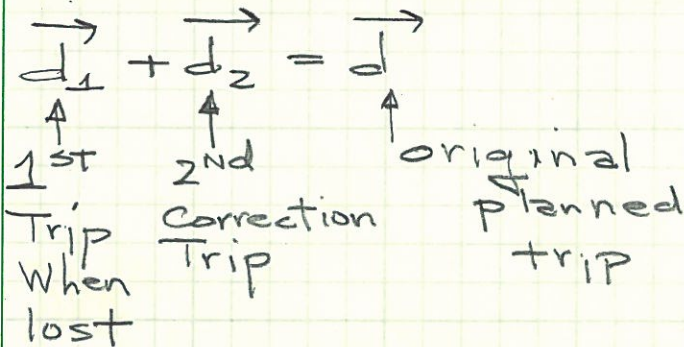 d₁ + d₂ = d
1st
Trip
When
lost
2Nd
Correction
Trip
original
planned
trip